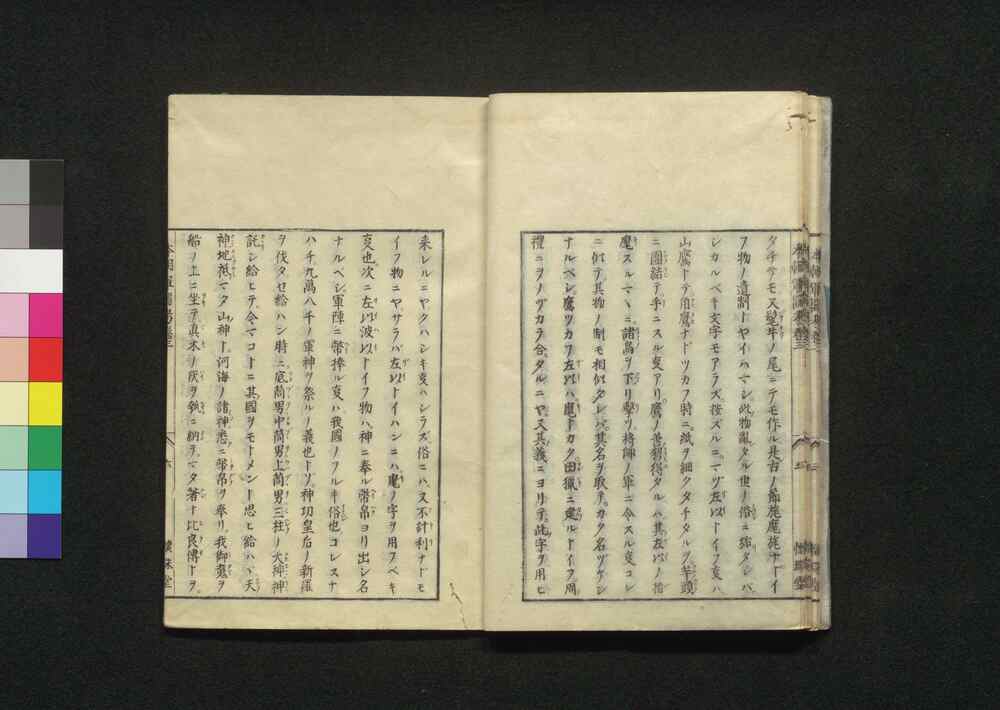 タチサモ又犛牛ノ尾ニテモ作ル是古ノ節旄麾旄ナドイ
フ物ノ遺制トヤイハマシ此物亂タル世ノ俗ニ始タレバ
シカルベキ文字モアラズ按ズルニマヅ左以トイフ事ハ
山鷹ト角鷹ナドツカフ時ニ紙ヲ細クタチタルヲ竿頭
ニ團結テ手ニスル事アリ鷹ノ善鍛得タルハ其左以ノ指
麾スルマヽニ諸鳥ヲ下リ擊ツ將帥ノ軍ニ令スル事コレ
ニ似テ其物ノ制モ相似タレバ其名ヲ取テカク名ヅケシ
ナルベシ鷹ツカフ左以ハ麾トカク田獵ニ建ルトイフ周
禮ニヲノヅカラ合タルニヤ又其義ニヨリテ此字ヲ用ヒ
來レルニヤクハシキ事ハシラズ俗ニハ又不計利ナドモ
イフ物ニヤサラバ左以トイハンニハ麾ノ字ヲ用フベキ
事也次ニ左以波以トイフ物ハ神ニ奉ル幣帛ヨリ出シ名
ナルベシ軍陣ニ幣捧ル事ハ我國ノフルキ俗也コレスナ
ハチ九萬八千ノ軍神ヲ祭ルノ義也トゾ神功皇后ノ新羅
ヲ伐タセ給ハン時ニ底筒男中筒男上筒男三柱ノ大神神
託シ給ヒテ今マコトニ其國ヲモトメント思ヒ給ハヾ天
神地祇マタ山神ト河海ノ諸神悉ニ幣帛ヲ奉リ我御靈ヲ
船ノ上ニ坐テ眞木ノ灰ヲ瓠ニ納テマタ箸ト比良傳トヲ